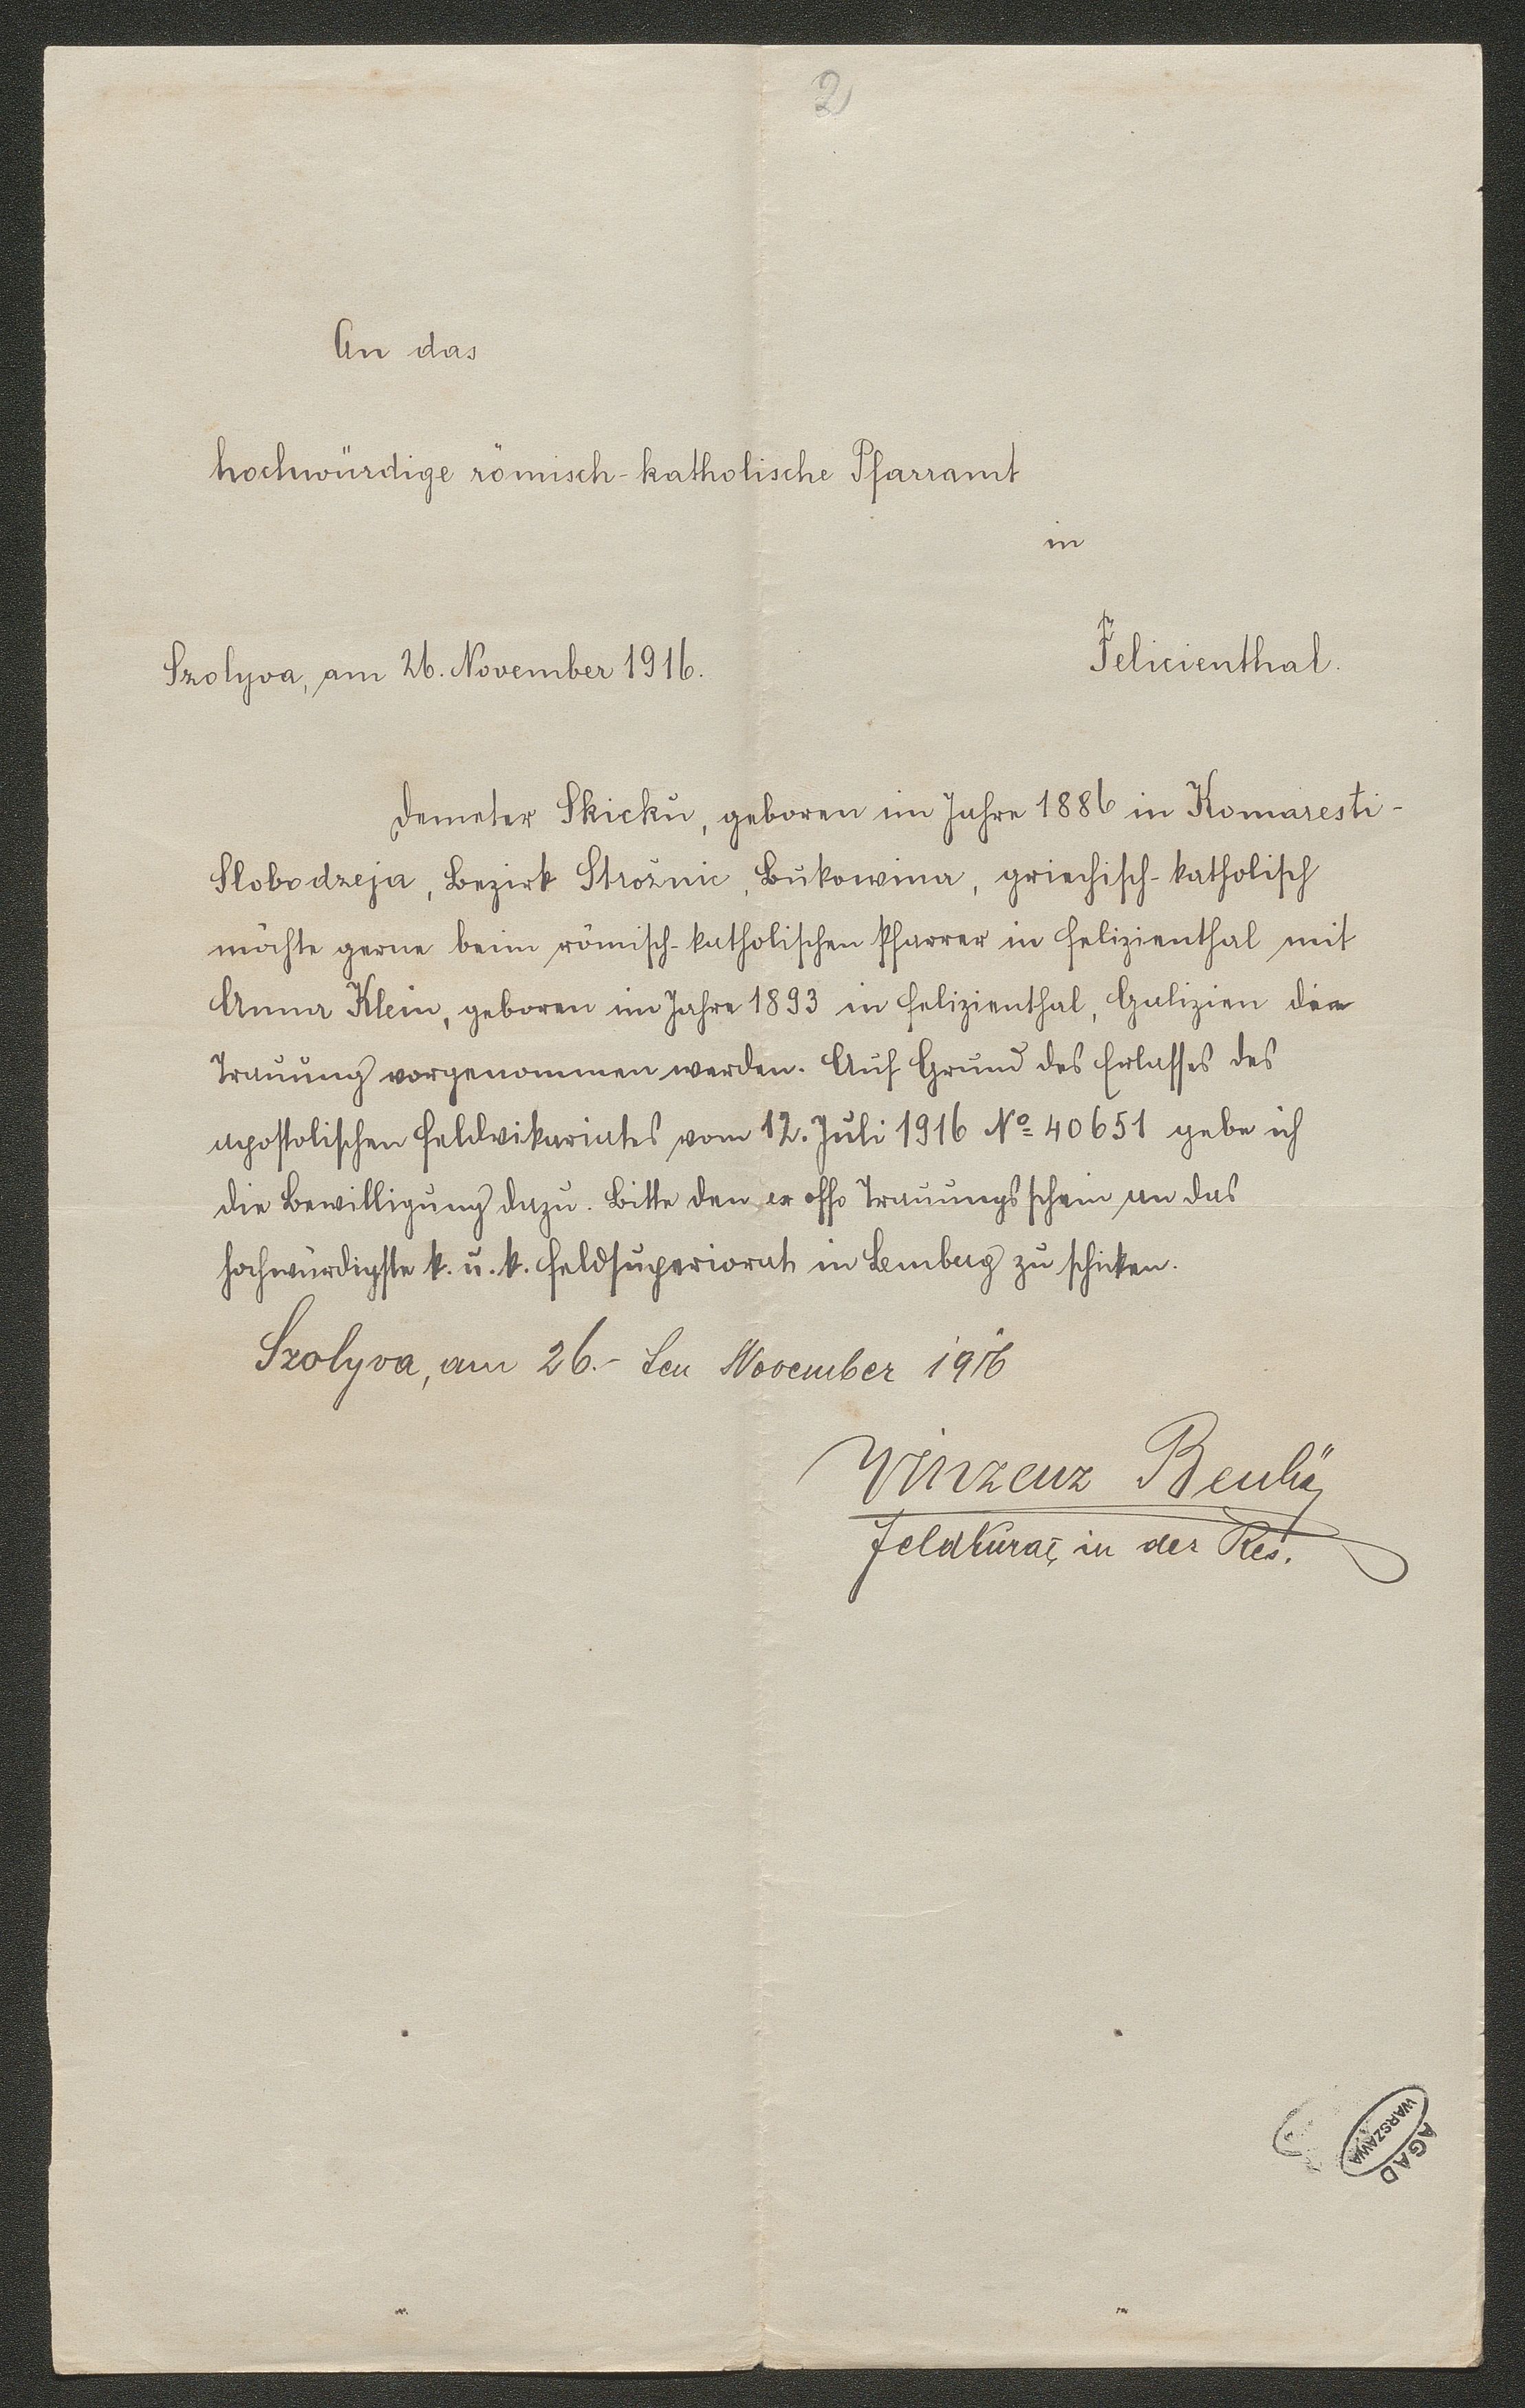 2
An das
hochwürdige römisch-katholische Pfarramt
in
Felicienthal.
Szolyva, am 26. November 1916.
Demeter Skicku, geboren im Jahre 1886 in Komaresti-
Slobodzeja, Bezirk Strožnic, Bukowina, griechisch-katholisch
möchte gerne beim römisch-katholischen Pfarrer in Felizienthal mit
Anna Klein, geboren im Jahre 1893 in Felizienthal, Galizien die
Trauung vorgenommen werden. Auf Grund des Erlasses des
apostolischen Feldvikariates vom 12. Juli 1916 No 40651 gebe ich
die Bewilligung dazu. Bitte den ex offo Trauungsschein an das
hochwürdigste k. u. k. Feldsuperiorat in Lemberg zu schicken.
Szolyva, am 26.- ten November 1916
Vinzenz
Feldkurat in der Res.
AGAD
WARSZAWA